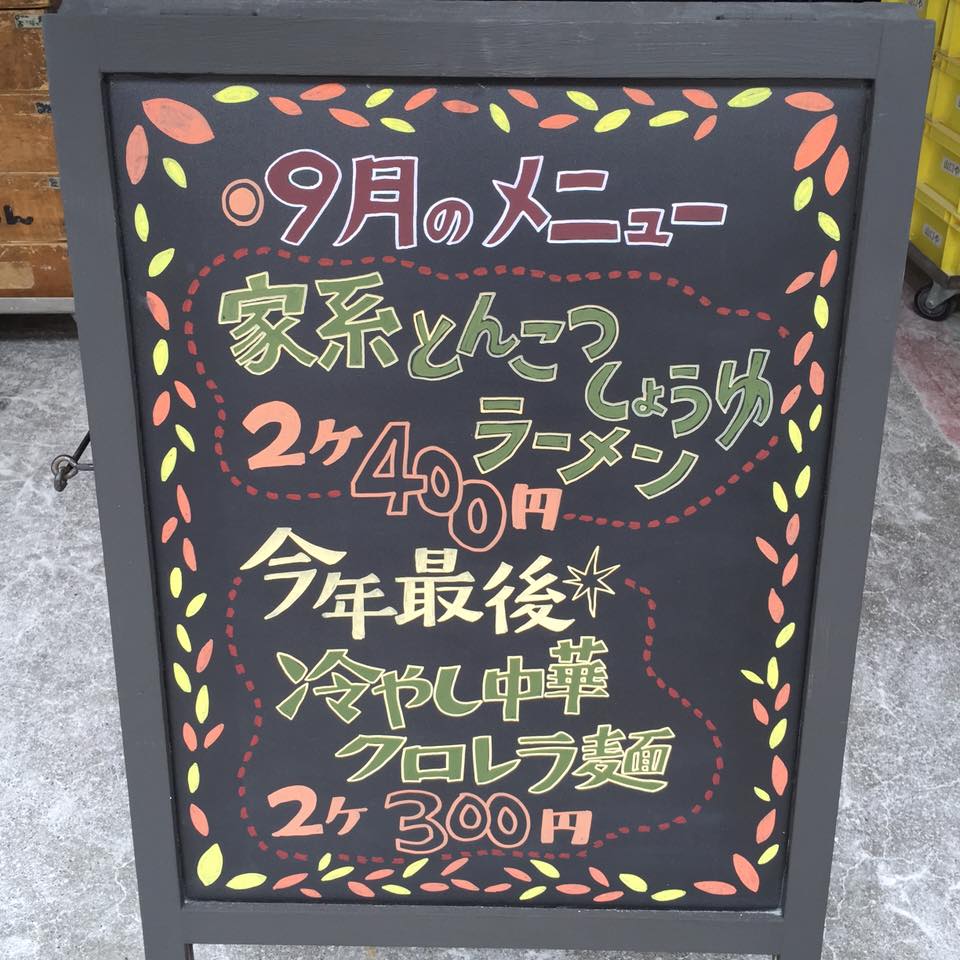 9月のメニュー
家系とんこつ
しょうゆ
ラーメン
2ヶ400円
今年最後
冷やし中華
クロレラ麺
2ヶ300円